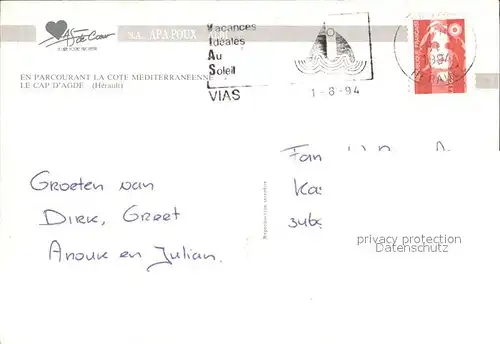 As de Cœur
S.A. APA POUX
Vacances
Idéales
Au
Soleil
VIAS
1-8-94
EN PARCOURANT LA COTE MEDITERRANEENNE
LE CAP D'AGDE (Hérault)
Groeten van
Dirk, Greet
Anouk en Julian.
Reproduction interdite
Fam
Ka
3200
privacy protection
Datenschutz